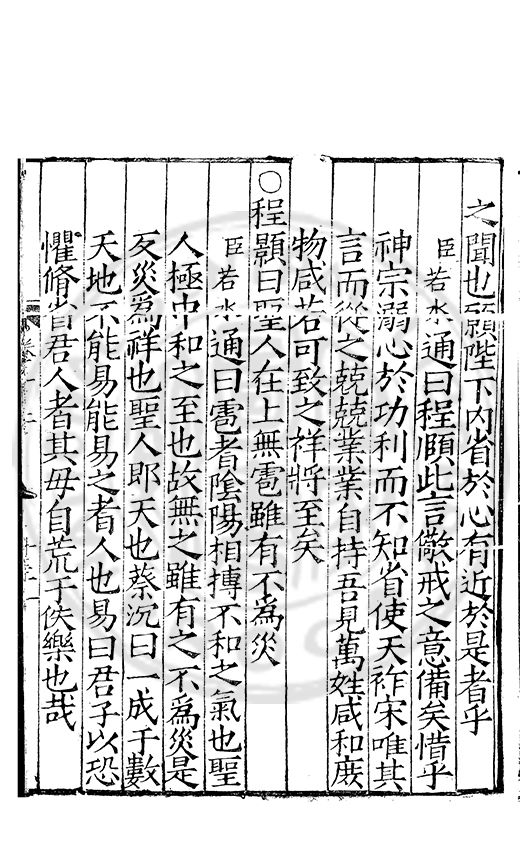 之聞也願陛下内省於心有近於是者乎
臣若水通曰程頤此言儆戒之意備矣惜乎
神宗溺心於功利而不知省使天祚宋唯其
言而從之兢兢業業自持吾見萬姓咸和庶
物咸若可致之祥將至矣
○程顥曰聖人在上無雹雖有不為災
臣若水通曰雹者陰陽相搏不和之氣也聖
人極中和之至也故無之雖有之不為災是
反災為祥也聖人即天也蔡沉曰一成于數
天地不能易能易之者人也易曰君子以恐
懼脩省君人者其毋自荒于佚樂也哉